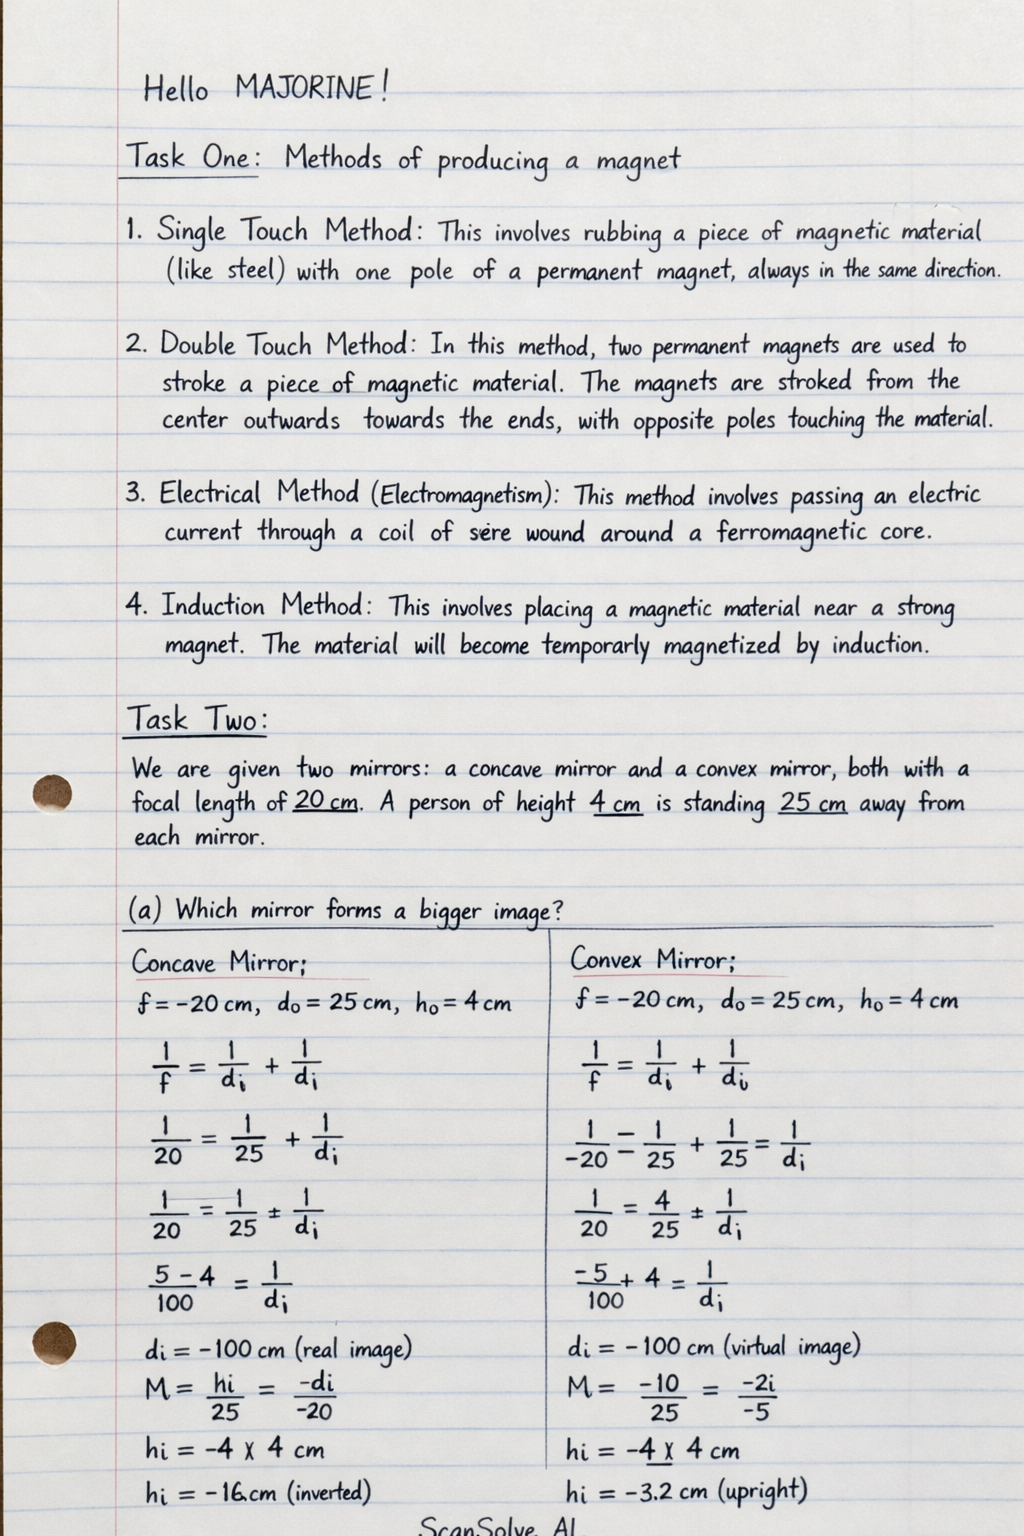 Hello MAJORINE!
Task One: Methods of producing a magnet
1. Single Touch Method: This involves rubbing a piece of magnetic material
(like steel) with one pole of a permanent magnet, always in the same direction.
2. Double Touch Method: In this method, two permanent magnets are used to
stroke a piece of magnetic material. The magnets are stroked from the
center outwards towards the ends, with opposite poles touching the material.
3. Electrical Method (Electromagnetism): This method involves passing an electric
current through a coil of sere wound around a ferromagnetic core.
4. Induction Method: This involves placing a magnetic material near a strong
magnet. The material will become temporarly magnetized by induction.
Task Two:
We are given two mirrors: a concave mirror and a convex mirror, both with a
focal length of 20 cm. A person of height 4 cm is standing 25 cm away from
each mirror.
(a) Which mirror forms a bigger image?
Concave Mirror;
f = -20 cm, do = 25 cm, ho = 4 cm
1/f = 1/di + 1/di
1/20 = 1/25 + 1/di
1/20 = 1/25 ± 1/di
5 - 4/100 = 1/di
di = -100 cm (real image)
M = hi/25 = -di/-20
hi = -4 x 4 cm
hi = -16.cm (inverted)
Convex Mirror;
f = -20 cm, do = 25 cm, ho = 4 cm
1/f = 1/di + 1/di
1/-20 = 1/25 + 1/25 = 1/di
1/20 = 4/25 ± 1/di
-5/100 + 4 = 1/di
di = -100 cm (virtual image)
M = -10/25 = -2i/-5
hi = -4 x 4 cm
hi = -3.2 cm (upright)
ScanSolve AI